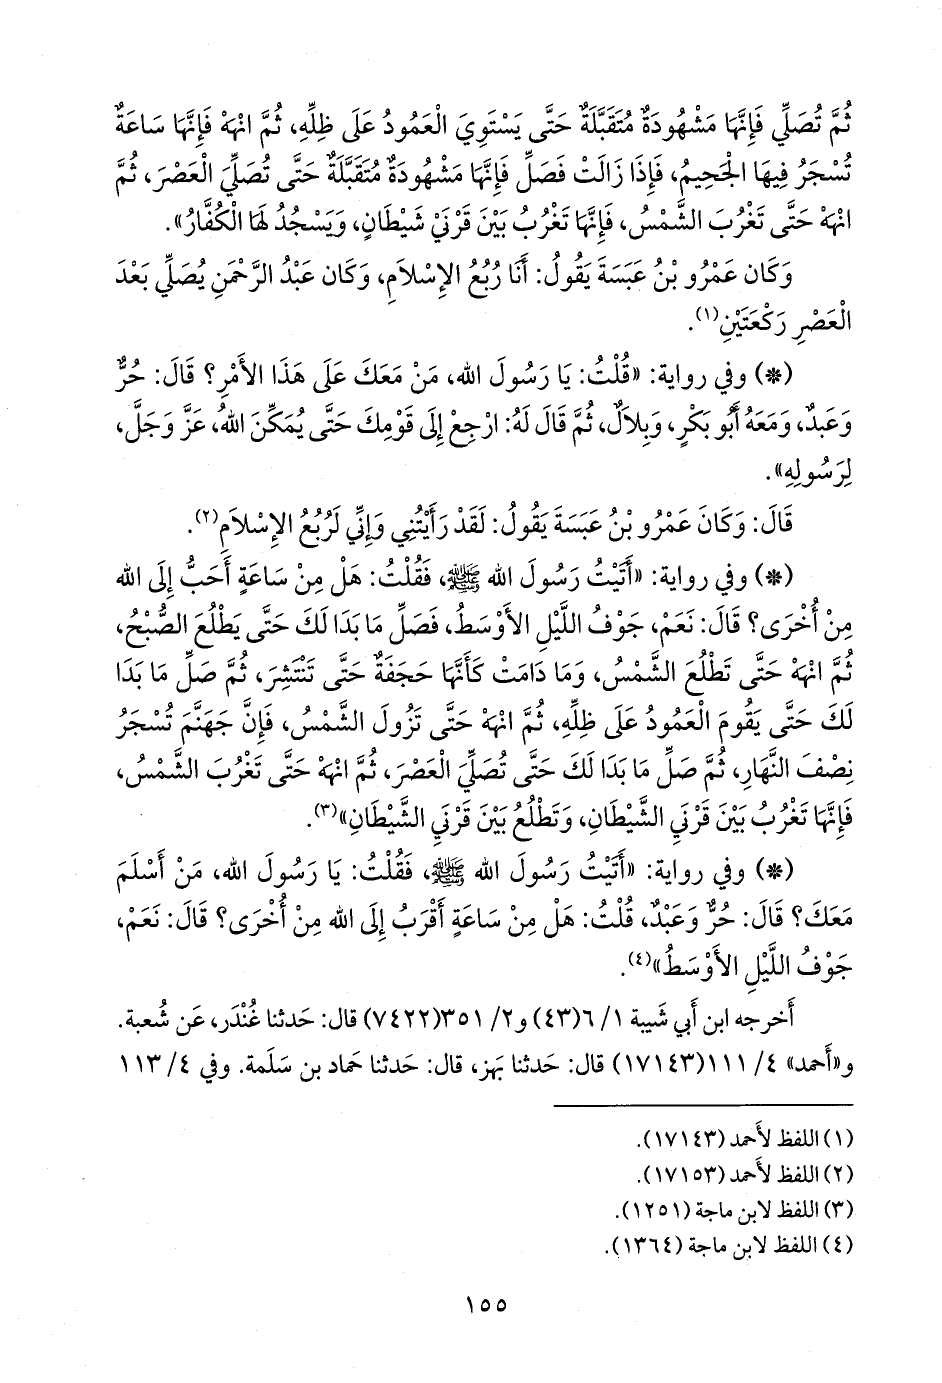 ثُمَّ تُصَلِّي فَإِنَّهَا مَشْهُودَةٌ مُتَقَبَّلَةٌ حَتَّى يَسْتَوِيَ الْعَمُودُ عَلَى ظِلِّهِ، ثُمَّ انْهَهْ فَإِنَّهَا سَاعَةٌ
تُسْجَرُ فِيهَا الْجَحِيمُ، فَإِذَا زَالَتْ فَصَلِّ فَإِنَّهَا مَشْهُودَةٌ مُتَقَبَّلَةٌ حَتَّى تُصَلِّيَ الْعَصْرَ، ثُمَّ
انْهَهْ حَتَّى تَغْرُبَ الشَّمْسُ، فَإِنَّهَا تَغْرُبُ بَيْنَ قَرْنَيْ شَيْطَانٍ، وَيَسْجُدُ لَهَا الْكُفَّارُ».
وَكَان عَمْرُو بْنُ عَبَسَةَ يَقُولُ: أَنَا رُبُعُ الإِسْلاَمِ، وَكَان عَبْدُ الرَّحْمَنِ يُصَلِّي بَعْدَ
الْعَصْرِ رَكْعَتَيْنِ(١).
(*) وفي رواية: «قُلْتُ: يَا رَسُولَ الله، مَنْ مَعَكَ عَلَى هَذَا الأَمْرِ؟ قَالَ: حُرٌّ
وَعَبدٌ، وَمَعَهُ أَبُو بَكْرٍ، وَبِلاَلٌ، ثُمَّ قَالَ لَهُ: ارْجِعْ إِلَى قَوْمِكَ حَتَّى يُمَكِّنَ اللهُ، عَزَّ وَجَلَّ،
لِرَسُولِهِ».
قَالَ: وَكَانَ عَمْرُو بْنُ عَبَسَةَ يَقُولُ: لَقَدْ رَأَيْتُنِي وَإِنِّي لَرُبُعُ الإِسْلاَمِ(٢).
(*) وفي رواية: «أَتَيْتُ رَسُولَ الله ﷺ، فَقُلْتُ: هَلْ مِنْ سَاعَةٍ أَحَبُّ إِلَى الله
مِنْ أُخْرَى؟ قَالَ: نَعَمْ، جَوْفُ اللَّيْلِ الأَوْسَطُ، فَصَلِّ مَا بَدَا لَكَ حَتَّى يَطْلُعَ الصُّبْحُ،
ثُمَّ انْهَهْ حَتَّى تَطْلُعَ الشَّمْسُ، وَمَا دَامَتْ كَأَنَّهَا حَجَفَةٌ حَتَّى تَنْتَشِرَ، ثُمَّ صَلِّ مَا بَدَا
لَكَ حَتَّى يَقُومَ الْعَمُودُ عَلَى ظِلِّهِ، ثُمَّ انْهَهْ حَتَّى تَزُولَ الشَّمْسُ، فَإِنَّ جَهَنَّمَ تُسْجَرُ
نِصْفَ النَّهَارِ، ثُمَّ صَلِّ مَا بَدَا لَكَ حَتَّى تُصَلِّيَ الْعَصْرَ، ثُمَّ انْهَهْ حَتَّى تَغْرُبَ الشَّمْسُ،
فَإِنَّهَا تَغْرُبُ بَيْنَ قَرْنَيِ الشَّيْطَانِ، وَتَطْلُعُ بَيْنَ قَرْنَيِ الشَّيْطَانِ»(٣).
(*) وفي رواية: «أَتَيْتُ رَسُولَ الله ﷺ، فَقُلْتُ: يَا رَسُولَ الله، مَنْ أَسْلَمَ
مَعَكَ؟ قَالَ: حُرٌّ وَعَبْدٌ، قُلْتُ: هَلْ مِنْ سَاعَةٍ أَقْرَبُ إِلَى الله مِنْ أُخْرَى؟ قَالَ: نَعَمْ،
جَوْفُ اللَّيْلِ الأَوْسَطُ»(٤).
أَخرجه ابن أبي شَيبة ١/ ٦(٤٣) و٢/ ٣٥١(٧٤٢٢) قال: حَدثنا غُنْدَر، عَن شُعبة.
و«أَحمد» ٤/ ١١١(١٧١٤٣) قال: حَدثنا بَهز، قال: حَدثنا حَماد بن سَلَمة. وفي ٤/ ١١٣
(١) اللفظ لأَحمد (١٧١٤٣).
(٢) اللفظ لأَحمد (١٧١٥٣).
(٣) اللفظ لابن ماجة (١٢٥١).
(٤) اللفظ لابن ماجة (١٣٦٤).
١٥٥